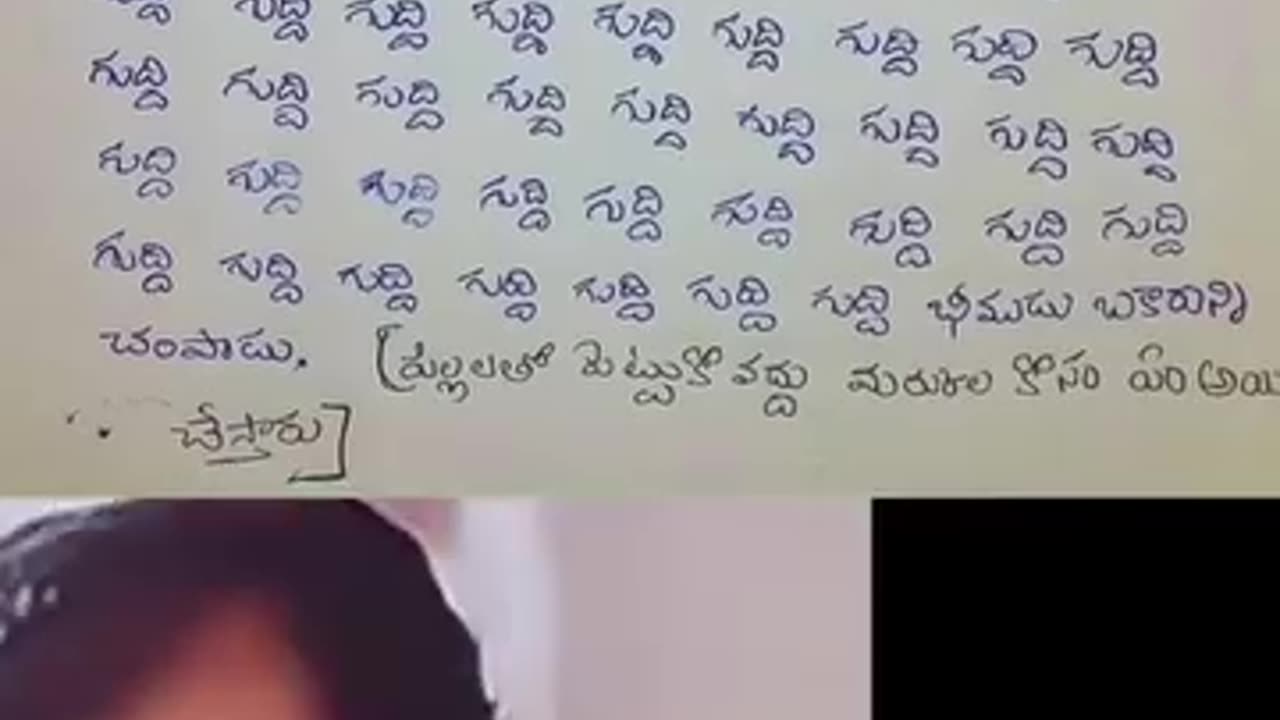 గుద్ది గుద్ది గుద్ది గుద్ది గుద్ది గుద్ది గుద్ది గుద్ది
గుద్ది గుద్ది గుద్ది గుద్ది గుద్ది గుద్ది గుద్ది గుద్ది గుద్ది
గుద్ది గుద్ది గుద్ది గుద్ది గుద్ది గుద్ది గుద్ది గుద్ది గుద్ది
గుద్ది గుద్ది గుద్ది గుద్ది గుద్ది గుద్ది గుద్ది భీముడు బకారున్ని
చంపాడు. [పిల్లలతో పెట్టుకోవద్దు మరుకుల కోసం ఏం అయి
చేస్తారు]